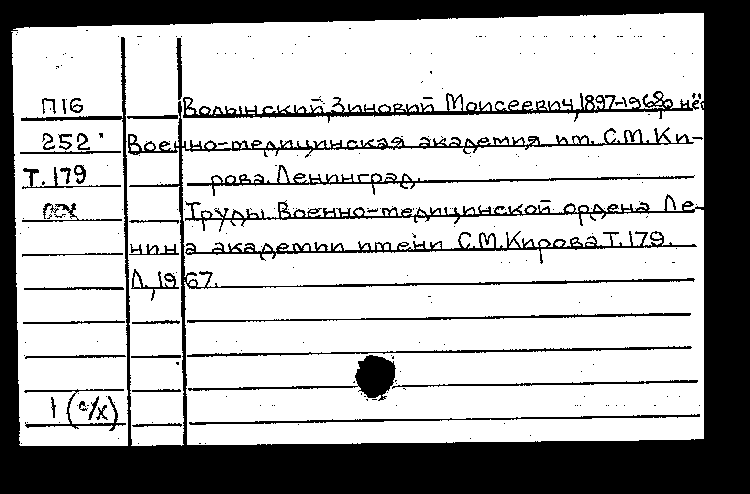 П16 Волынский, Зиновий Моисеевич, 1897-1968, о нём
252 Военно-медицинская академия им. С.М. Ки-
Т. 179 рова. Ленинград.
Труды Военно-медицинской ордена Ле-
нина академии имени С.М. Кирова. Т. 179.
Л., 1967.
1 (с/х)